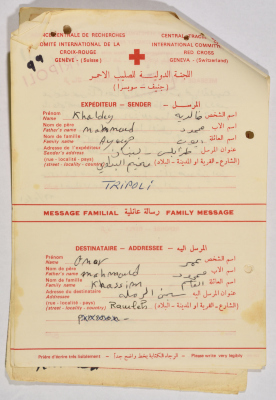 CENTRALE DE RECHERCHES
COMITE INTERNATIONAL DE LA
CROIX-ROUGE
GENÈVE - (Suisse)
CENTRAL TRACING
INTERNATIONAL COMMITTEE
RED CROSS
GENEVA - (Switzerland)
99
اللجنة الدولية للصليب الاحمر
(جنيف - سويسرا)
EXPEDITEUR - SENDER - المرسل
Prénom
Name
اسم الشخص
Nom de père
Father's name Mahmoud محمود اسم الاب
Nom de famille
Family name Ayoub ايوب اسم العائلة
Adresse de l'expéditeur
Sender's address
عنوان المرسل
(rue - localité - pays)
(street - locality - country)
(الشارع - القرية او المدينة - البلاد)
TRIPOLI
MESSAGE FAMILIAL رسالة عائلية FAMILY MESSAGE
DESTINATAIRE - ADDRESSEE - المرسل اليه
Prénom
Name Omar عمر اسم الشخص
Nom de père
Father's name Mahmoud محمود اسم الاب
Nom de famille
Family name Khassim اسم العائلة
Adresse du destinataire
Addresses
سجن الرملة عنوان المرسل اليه
(rue - localité - pays)
(street - locality - country)
Ramleh
(الشارع - القرية او المدينة - البلاد)
Prière d'écrire très lisiblement - الرجاء الكتابة بخط واضح جداً - Please write very legibly